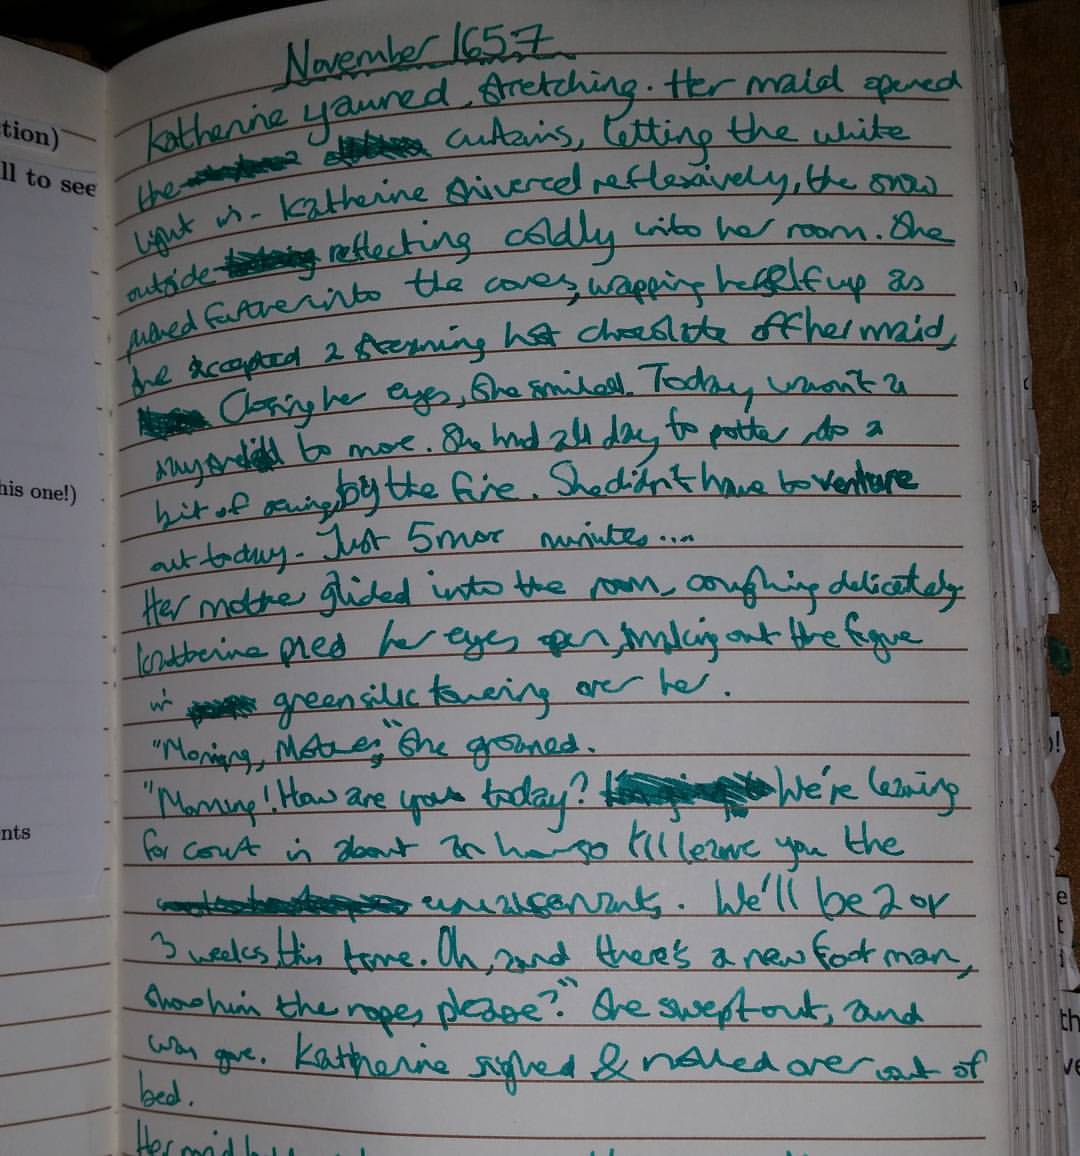 tion)
ll to see
his one!)
nts
November 1657
Katherine yawned, stretching. Her maid opened
the curtains, letting the white
light in. Katherine shivered reflexively, the snow
outside reflecting coldly into her room. She
pushed further into the covers, wrapping herself up as
she accepted a steaming hot chocolate off her maid,
Closing her eyes, she smiled. Today wasn't a
day to move. She had all day to potter, do a
bit of sewing, by the fire. She didn't have to venture
out today. Just 5 more minutes....
Her mother glided into the room, coughing delicately
Katherine pried her eyes open, making out the figure
in green silk towering over her.
"Morning, Mother," she groaned.
"Morning! How are you today? We're leaving
for court in about an hour so I'll leave you the
usual servants. We'll be 2 or
3 weeks, this time. Oh, and there's a new foot man,
show him the ropes, please?" She swept out, and
was gone. Katherine sighed & rolled over out of
bed.
Her maid